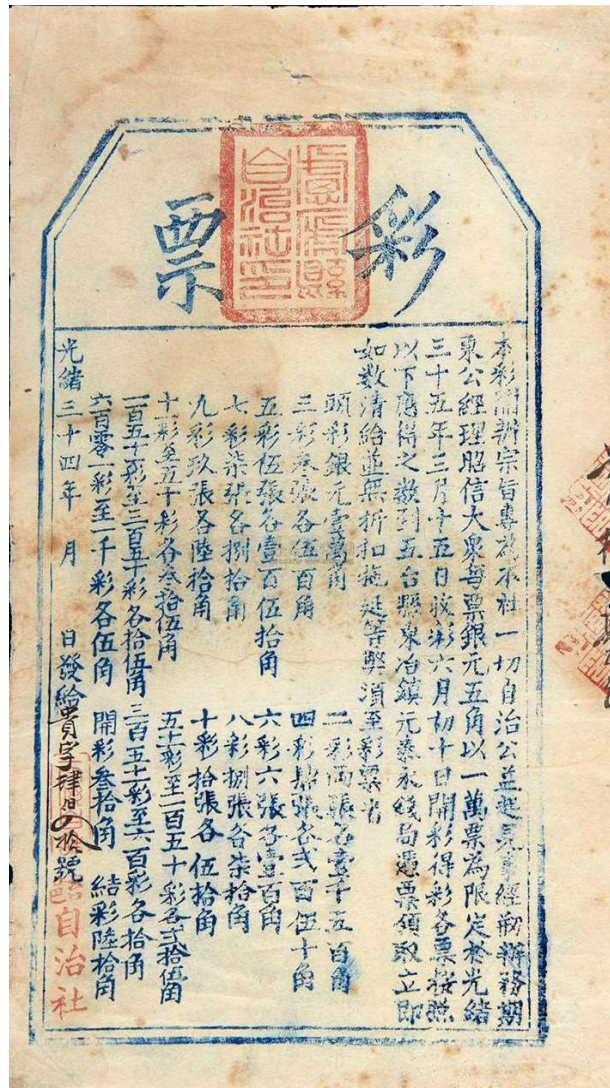 彩票
本彩開辦宗旨專為本社一切自治公益起見事經剏辦務期
東公經理昭信大衆每票銀元五角以一萬票為限定於光緒
三十五年三月十五日收彩六月初十日開彩得彩各票按照
以下應得之數到五台縣東冶鎮元泰永錢局憑票領取立即
如數清給並無折扣拖延等弊須至彩票者
頭彩銀元壹萬角 二彩兩張各壹千五百角
三彩叁張各伍百角 四彩肆張各弍百伍十角
五彩伍張各壹百伍拾角 六彩六張各壹百角
七彩柒張各捌拾角 八彩捌張各柒拾角
九彩玖張各陸拾角 十彩拾張各伍拾角
十一彩至五十彩各叁拾伍角 五十一彩至一百五十彩各弍拾伍角
一百五十一彩至三百五十彩各拾伍角 三百五十一彩至六百彩各拾角
六百零一彩至一千彩各伍角 開彩叁拾角 結彩陸拾角
光緒三十四年 月 日發給貴字肆百〇拾號
自治社
自治社印